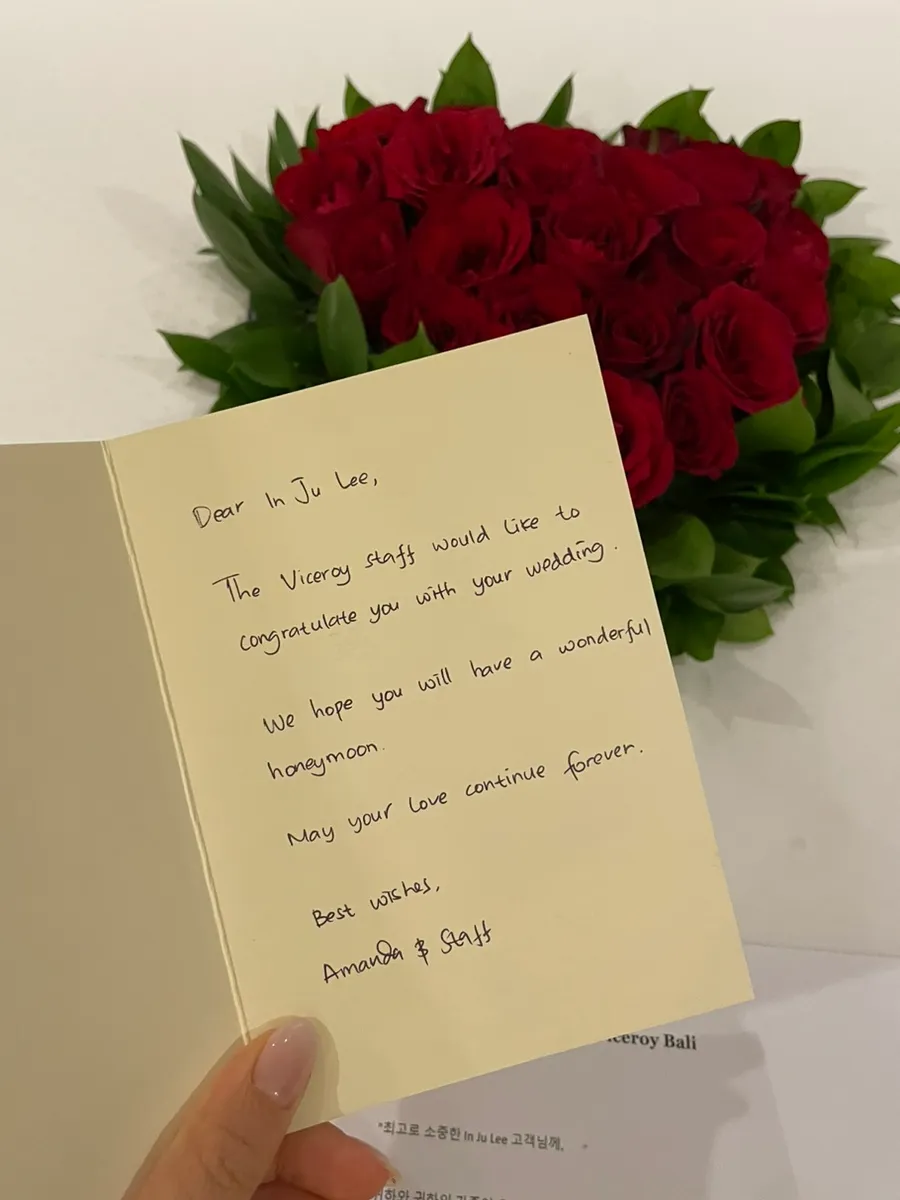 Dear In Ju Lee,
The Viceroy staff would like to
congratulate you with your wedding.
We hope you will have a wonderful
honeymoon.
May your love continue forever.
Best wishes,
Amanda & Staff
Bali
"최고로 소중한 In Ju Lee 고객님께,